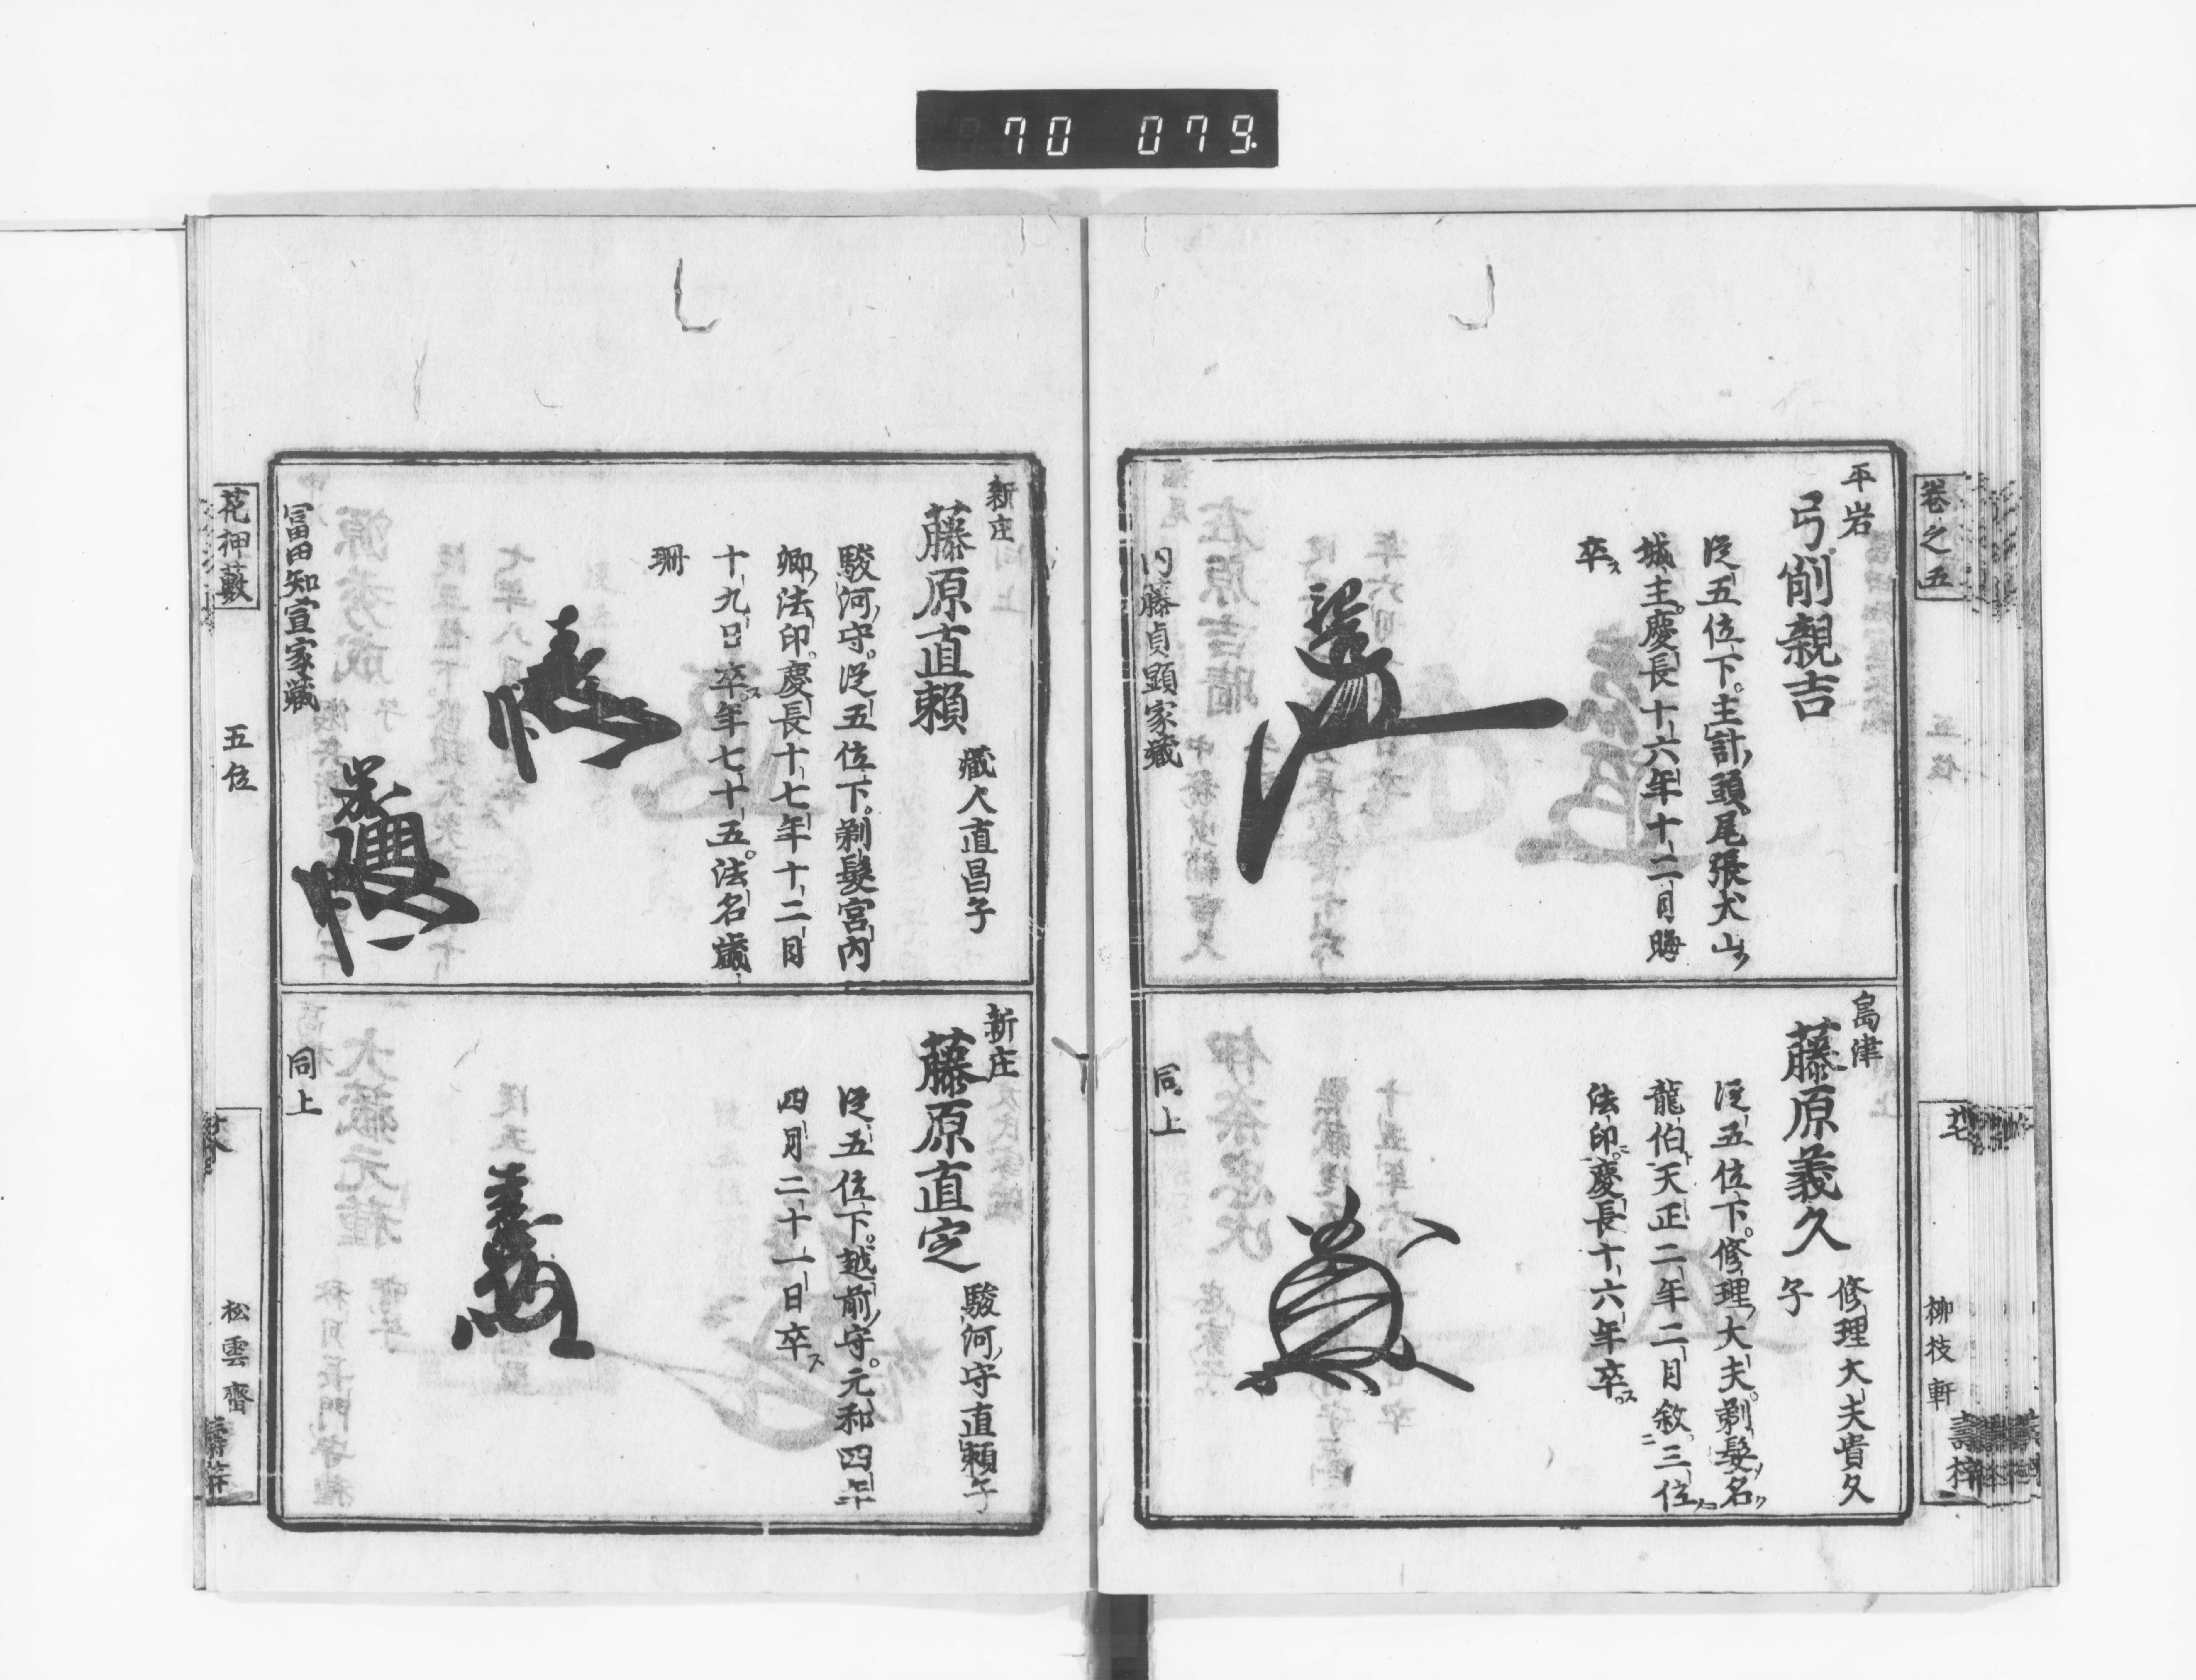 70 079
卷之五
平岩
弓削親吉
從五位下。主計頭、尾張犬山ノ
城主。慶長十六年十二月晦
卒ス
内藤貞顕家藏
島津
藤原義久 修理大夫貴久
子
從五位下。修理大夫。剃髪名ク
龍伯天正二年二月敘ニ三位
法印ニ。慶長十六年卒ス。
同上
柳枝軒
壽梓
新庄
藤原直頼 藏人直昌子
駿河守。從五位下。剃髮宮内
卿法印。慶長十七年十二月
十九日卒ス。年七十五。法名歲
珊
冨田知宣家藏
新庄
藤原直定 駿河守直頼子
從五位下。越前守。元和四年
四月二十一日卒ス
同上
花押藪
五位
松雲齋